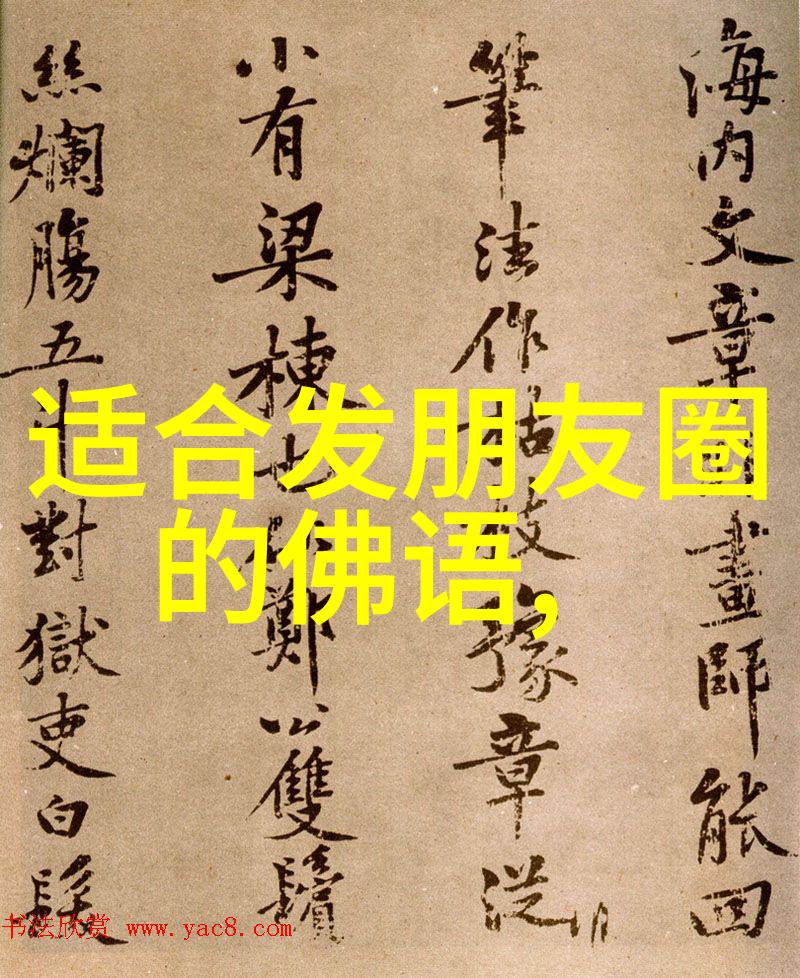 海内文章畫師能回
筆法作枯枝豫章従
小有梁棟也鄭公雙鬢
絲爛腸五斗對獄吏白髮
适合发朋友圈
的佛语,
书法欣赏 www.yac8.com